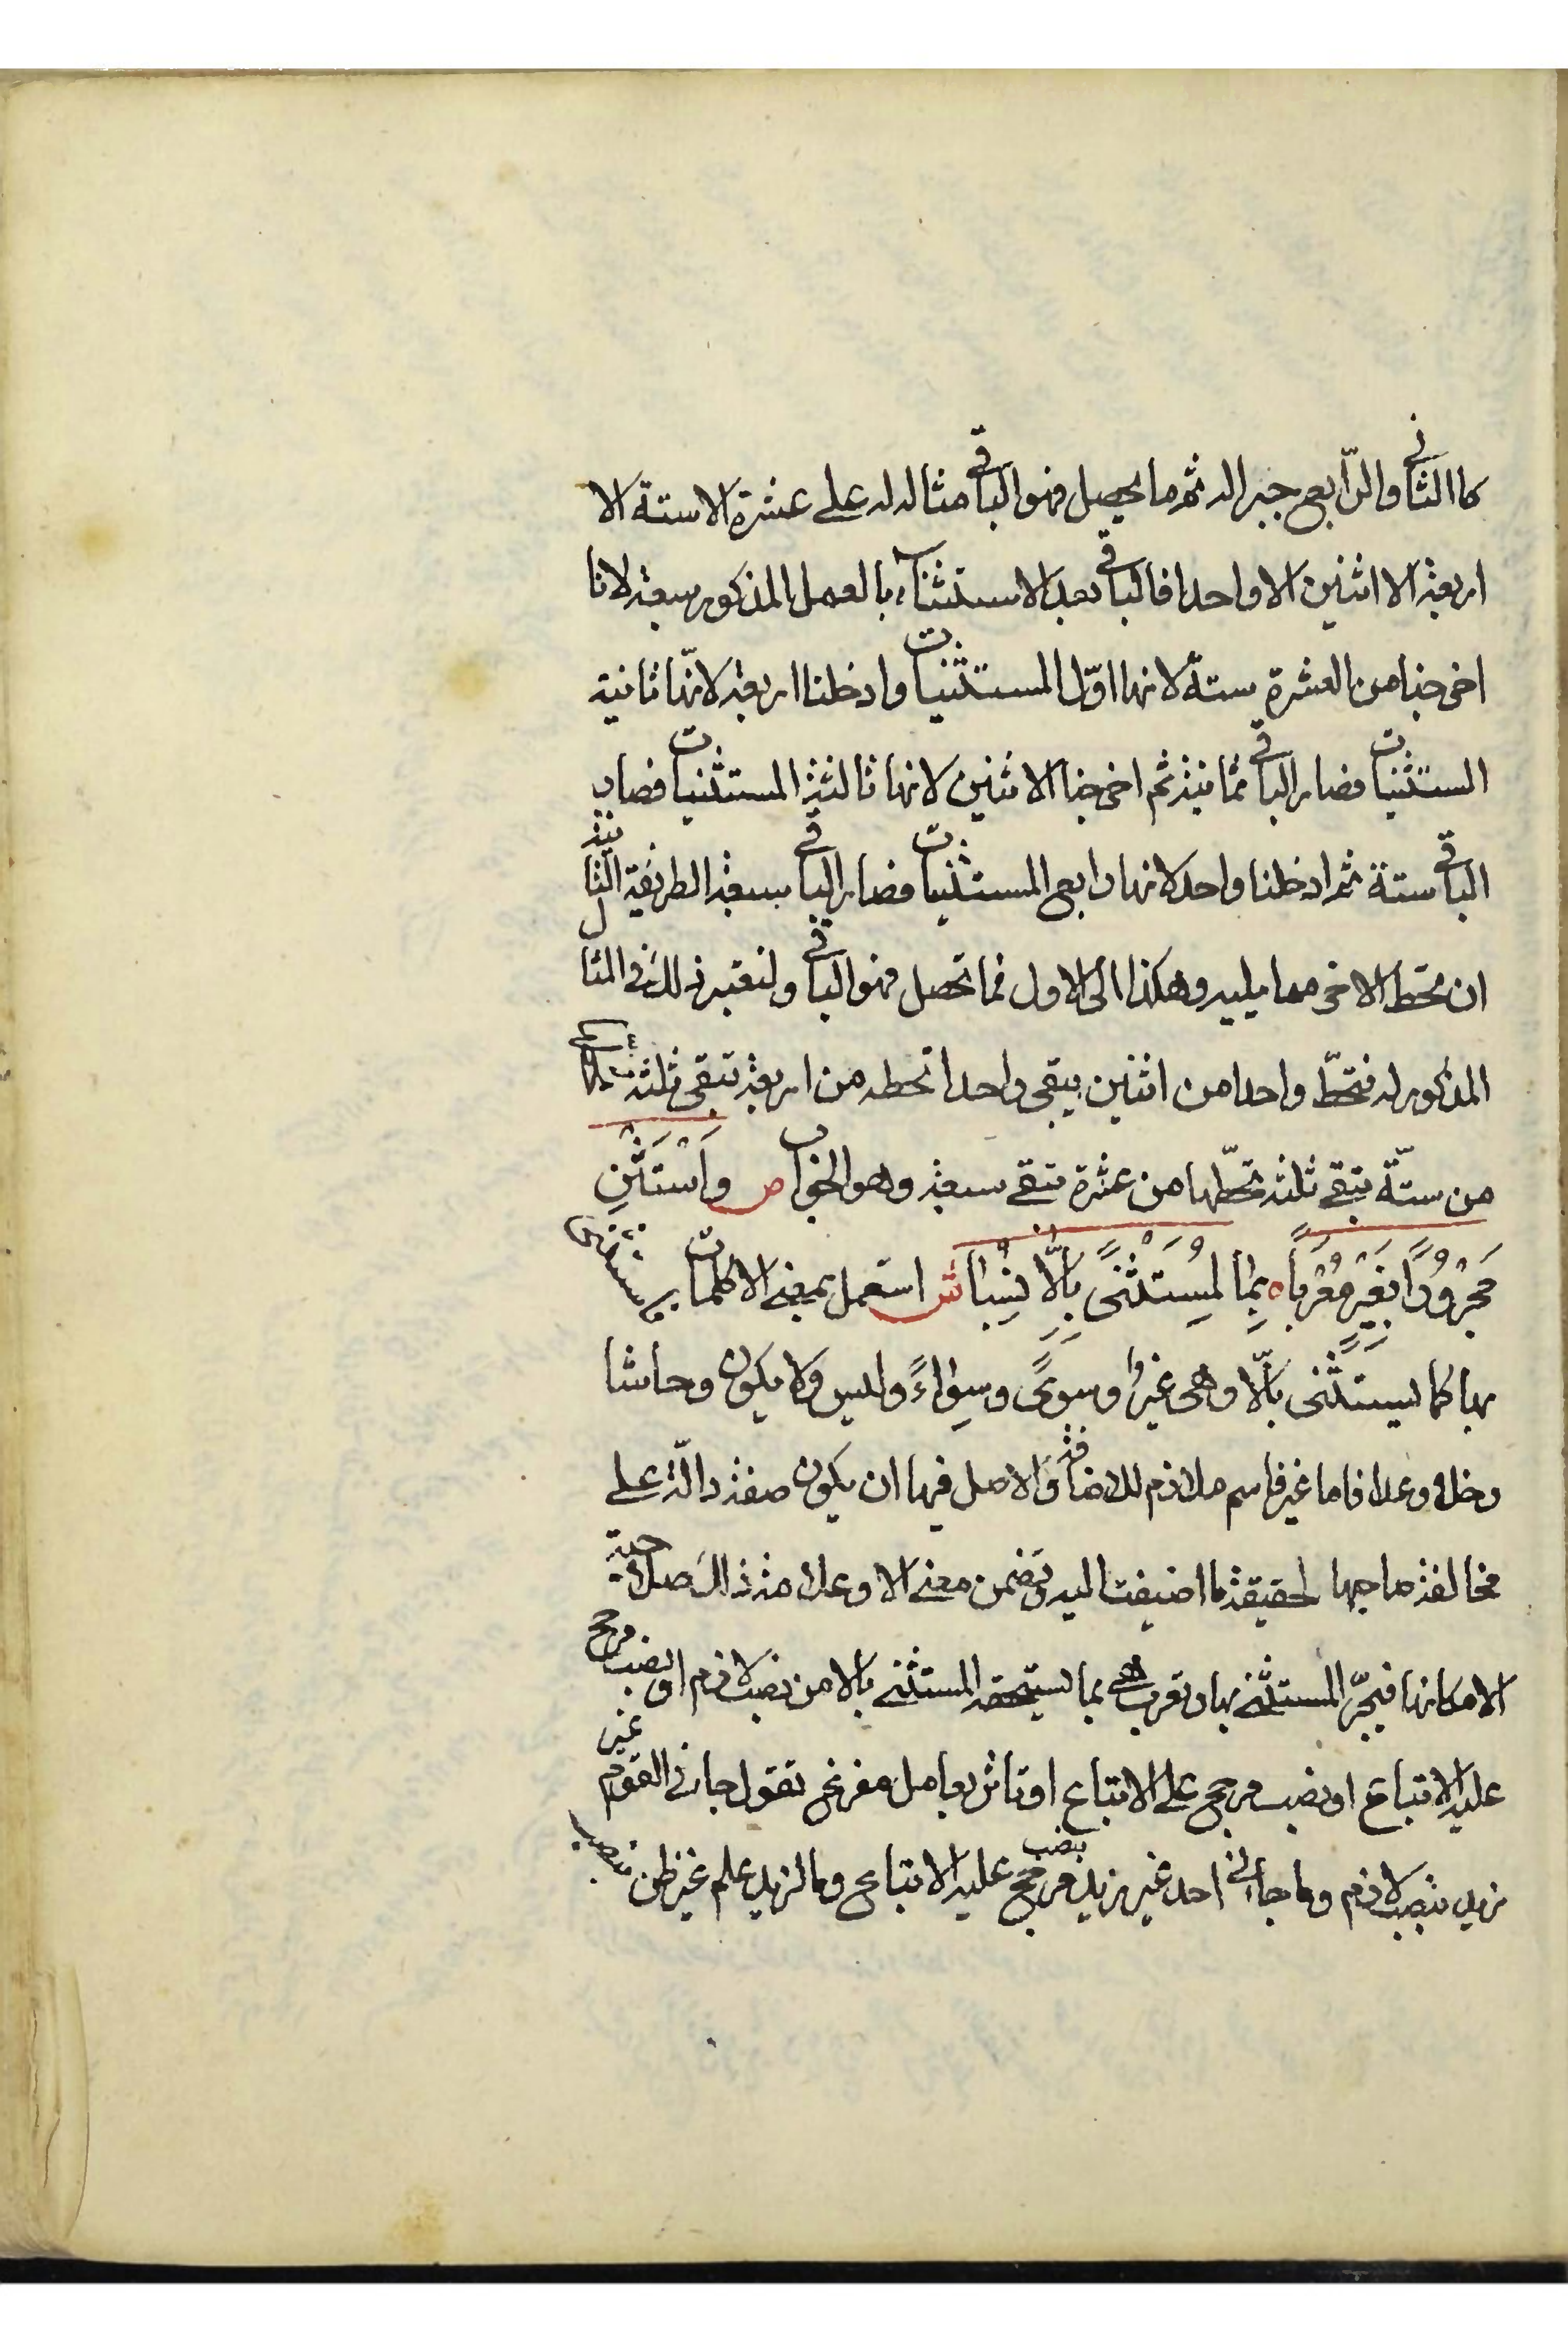 كاالثانى والرّابع جبرا له ثم ما يحصل فهو الباقى مثاله له على عشرة الا ستة الا
اربعة الا اثنين الا واحدا فالباقى بعد الاستثناء بالعمل المذكور سبعة لانا
اخرجنا من العشرة ستة لانها اوّل المستثنيات وادخلنا اربعة لانّها ثانية
الستثنيات فصار الباقى ثمانية ثم اخرجنا الاثنين لانها ثالثة المستثنيات فصار
الباقى ستة ثم ادخلنا واحد لانها رابع المستثنيات فصار الباقى سبعة الطريقة الثانية
ان تحط الاخر مما يليه وهكذا الى الاول فما تحصل فهو الباقى ولنعتبر ذلك فى المثال
المذكور له فتحطّ واحدا من اثنين يبقى واحدا تحطه من اربعة تبقى ثلثة
من ستّة تبقى ثلثة تحطّها من عشرة تبقى سبعة وهو الجواب ص وَاَسْتَثْنِ
مَجْرُورًا بِغَيْرٍ مُعْرَباً ه بِمَا لِمُسْتَثْنًى بِاِلَّا نُسِبَا ش استعمل بمعنى الا كلمات يستثنى
بها كما يستثنى بألّا وهى غير وسوىً وسِواءً وليس ولا يكون وحاشا
وخلا وعدا فاما غير فاسم ملازم للاضافة والاصل فيها ان يكون صفة دالّة على
مخالفة صاحبها لحقيقة ما اضيفت اليه وتضمن معنى الا وعلا منذ ذلك صلاحية
الا مكانها فيجرّ المستثنى بها وتعرب هى بما يستحقه المستثنى بالا من نصب لازم او نصب مرجح
عليه الاتباع او نصب مرجح على الاتباع او تاثر بعامل مفرغ تقول جائنى القوم غير
زيد بنصب لازم وما جاءنى احد غير زيد بنصب مرجح عليه الاتباع وما لزيد علم غير ظن بنصب